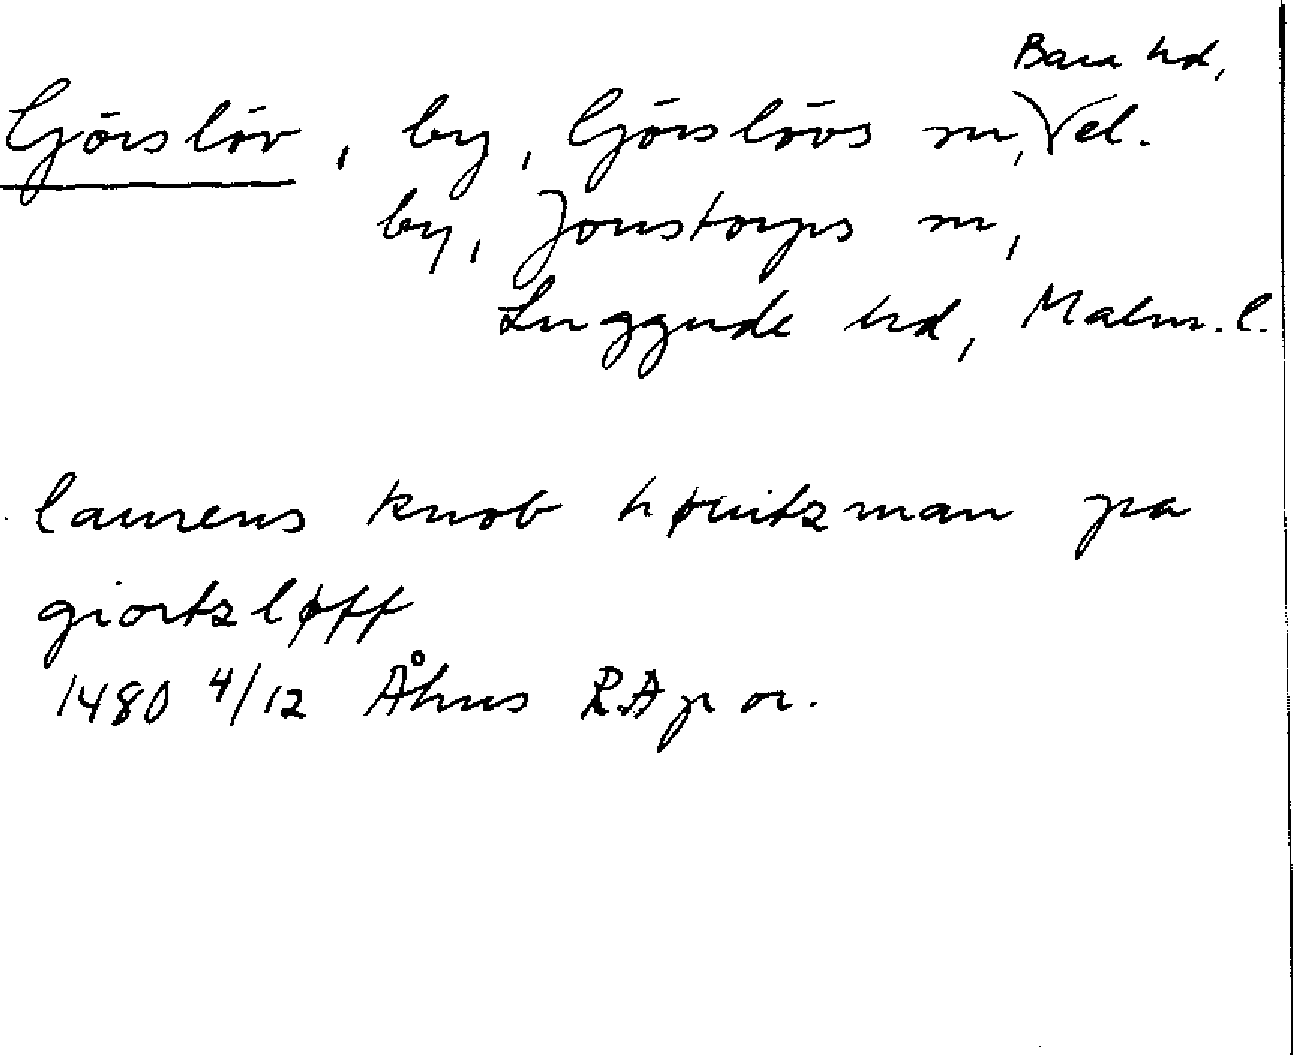 Bara hd,
Görslöv, by, Görslövs sn, el.
by, Jonstorps sn,
Luggude hd, Malm. l.
laurens knob høuitzman pa
giortzløff
1480 4/12 Åhus RAp or.